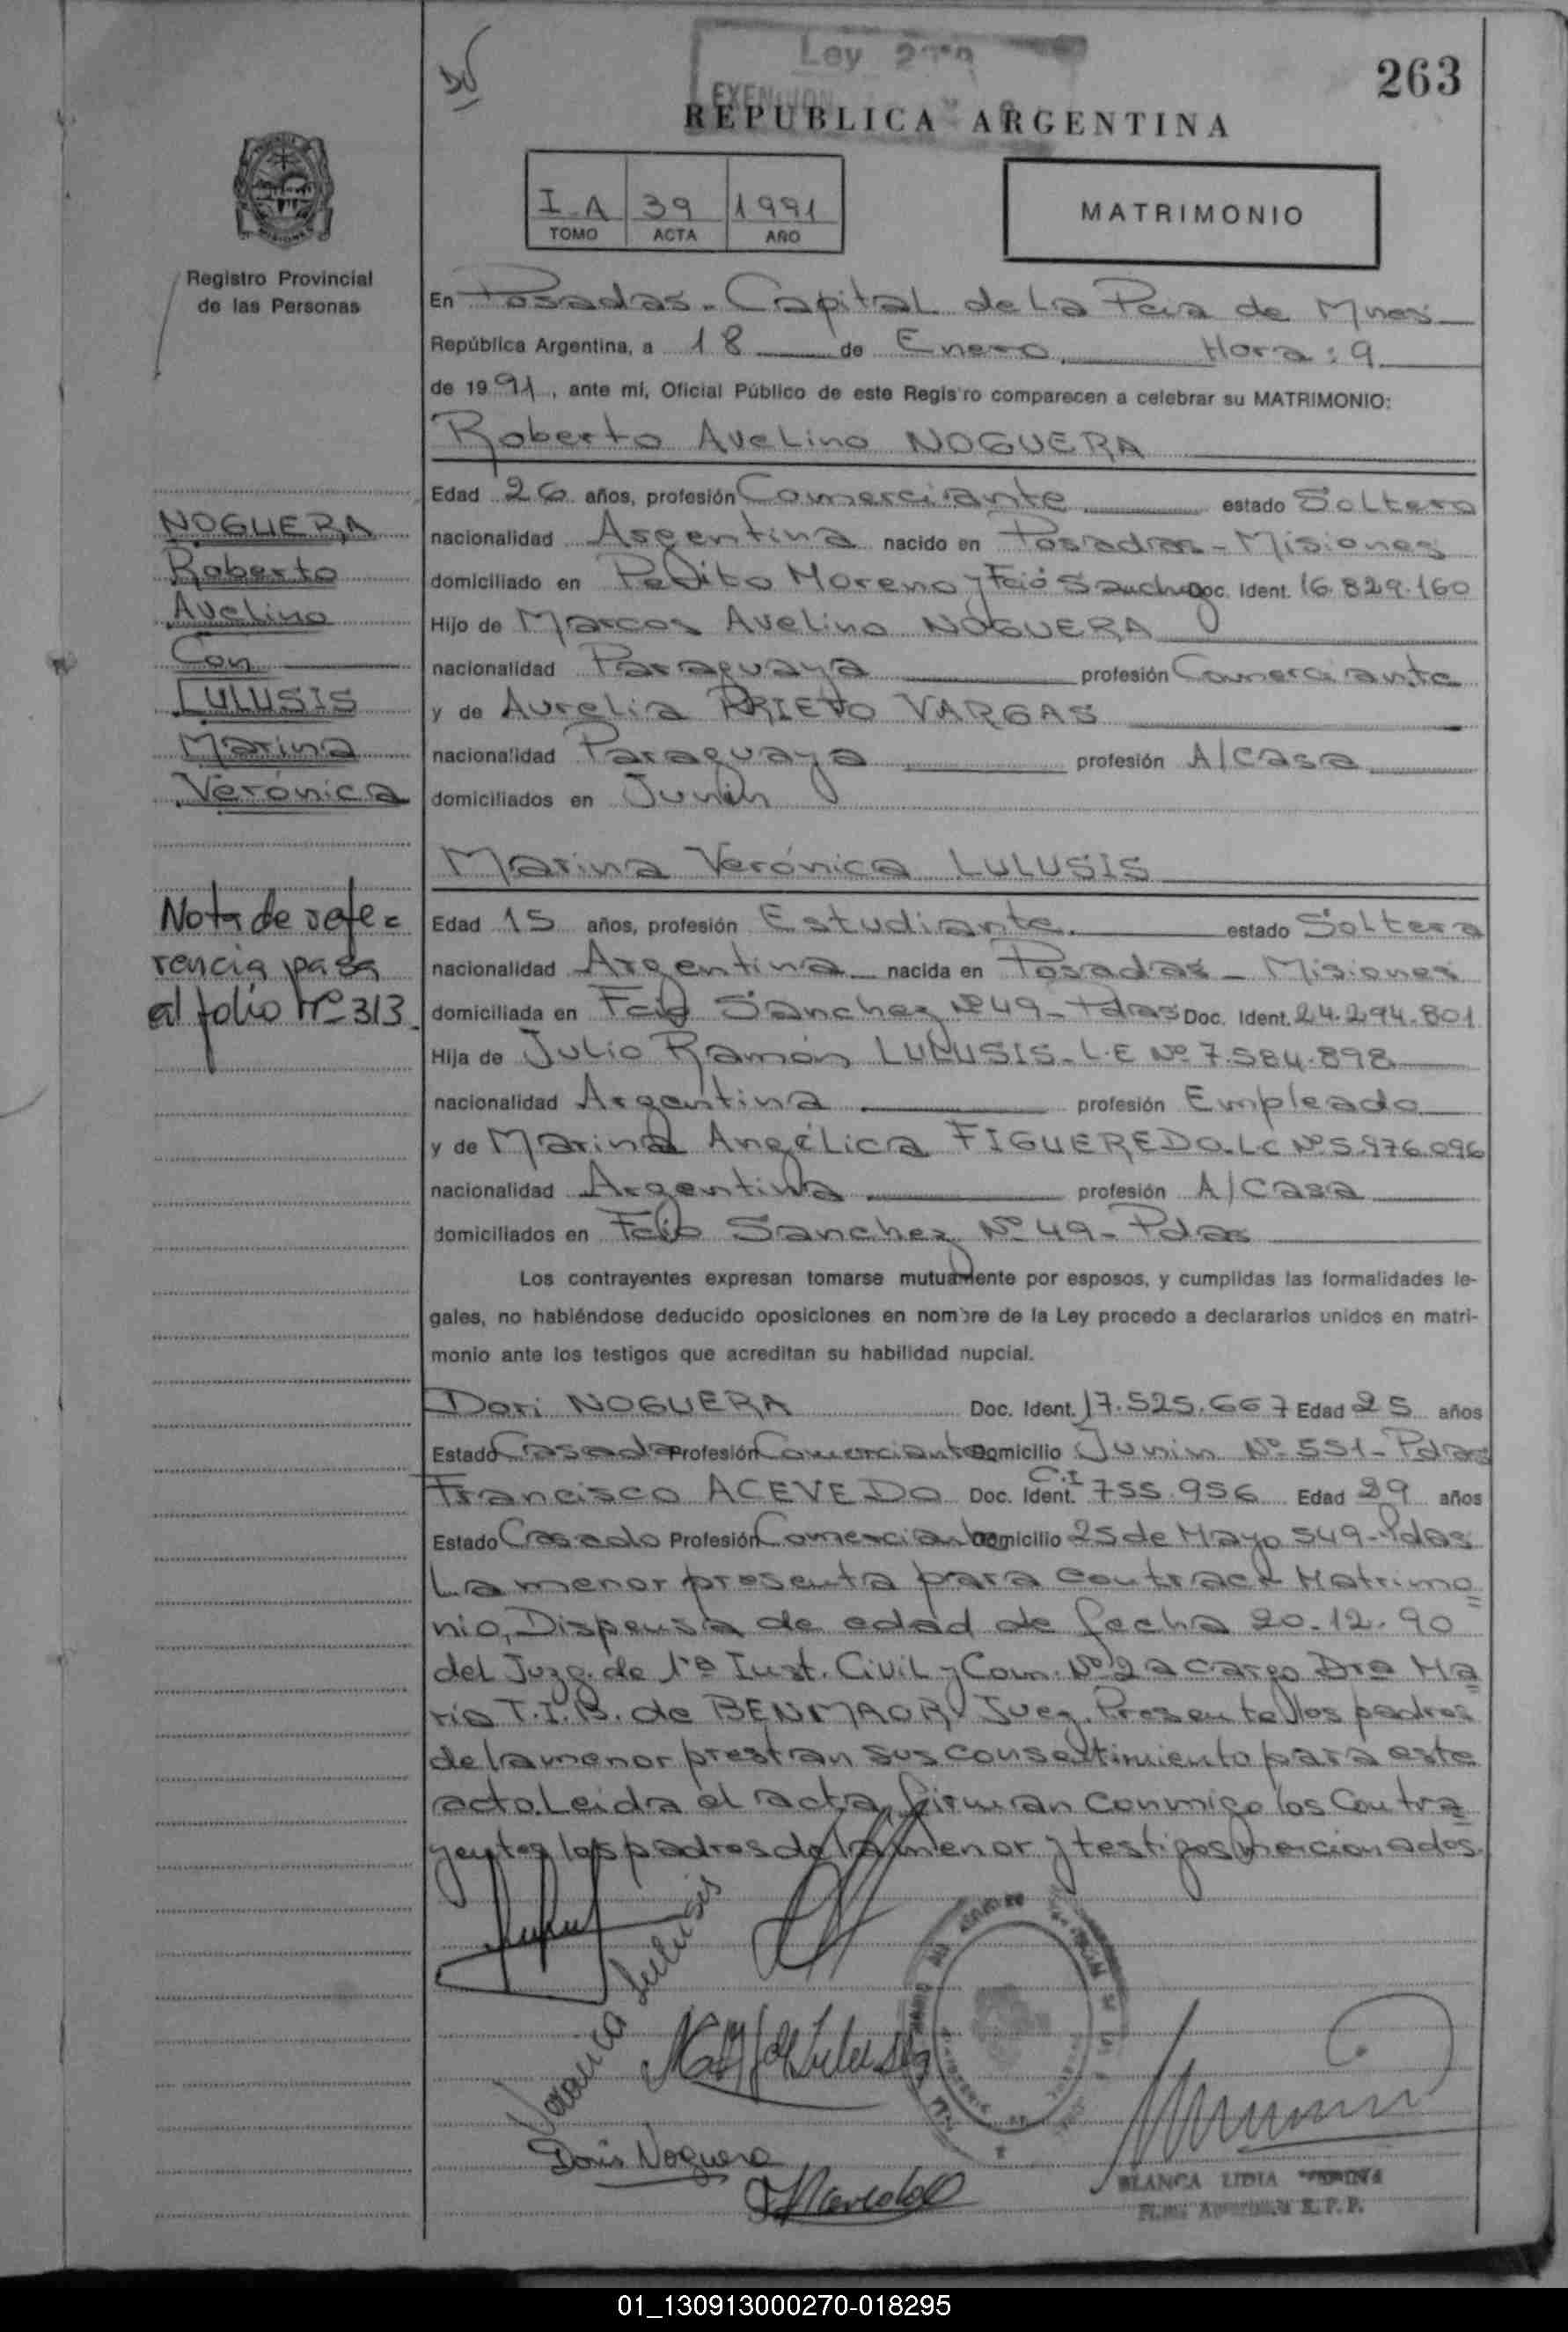 263
Ley
EXENCION
REPUBLICA ARGENTINA
I-A 39 1991
TOMO ACTA AÑO
MATRIMONIO
Registro Provincial
de las Personas
En Posadas - Capital de La Pcia de Mnes
República Argentina, a 18 de Enero Hora: 9
de 1991, ante mí, Oficial Público de este Registro comparecen a celebrar su MATRIMONIO:
Roberto Avelino NOGUERA
Edad 26 años, profesión Comerciante estado Soltero
nacionalidad Argentina nacido en Posadas - Misiones
domiciliado en Perito Moreno y Fcio Sanchez Doc. Ident. 16.829.160
Hijo de Marcos Avelino NOGUERA
nacionalidad Paraguaya profesión Comerciante
y de Aurelia PRIETO VARGAS
nacionalidad Paraguaya profesión A/Casa
domiciliados en Junin
NOGUERA
Roberto
Avelino
Con
LULUSIS
Marina
Verónica
Marina Verónica LULUSIS
Edad 15 años, profesión Estudiante estado Soltera
nacionalidad Argentina nacida en Posadas - Misiones
domiciliada en Fcio Sanchez Nº 49 - Pdas Doc. Ident. 24.294.801
Hija de Julio Ramón LULUSIS - L.E Nº 7.584.898
nacionalidad Argentina profesión Empleado
y de Marina Angélica FIGUEREDO. L.C Nº 5.976.096
nacionalidad Argentina profesión A/Casa
domiciliados en Fcio Sanchez Nº 49 - Pdas
Nota de refe=
rencia pasa
al folio Nº 313.
Los contrayentes expresan tomarse mutuamente por esposos, y cumplidas las formalidades le-
gales, no habiéndose deducido oposiciones en nombre de la Ley procedo a declararlos unidos en matri-
monio ante los testigos que acreditan su habilidad nupcial.
Dori NOGUERA Doc. Ident. 17.525.667 Edad 25 años
Estado Casada Profesión Comerciante Domicilio Junin Nº 551 - Pdas
Francisco ACEVEDO Doc. Ident. C.I 755.956 Edad 29 años
Estado Casado Profesión Comerciante Domicilio 25 de Mayo 549 - Pdas
La menor presenta para contraer Matrimo=
nio, Dispensa de edad de fecha 20.12.90
del Juzg. de 1ra Inst. Civil y Com. Nº 2 a cargo Dra Ma=
ria T.I.B. de BENMAOR Juez. Presente los padres
de la menor prestan sus consentimiento para este
acto. Leida el acta firman conmigo los Contra=
yentes los padres de la menor y testigos mencionados.
Veronica Lulusis
Doris Noguera
BLANCA LIDIA
R.P.P.
01_130913000270-018295